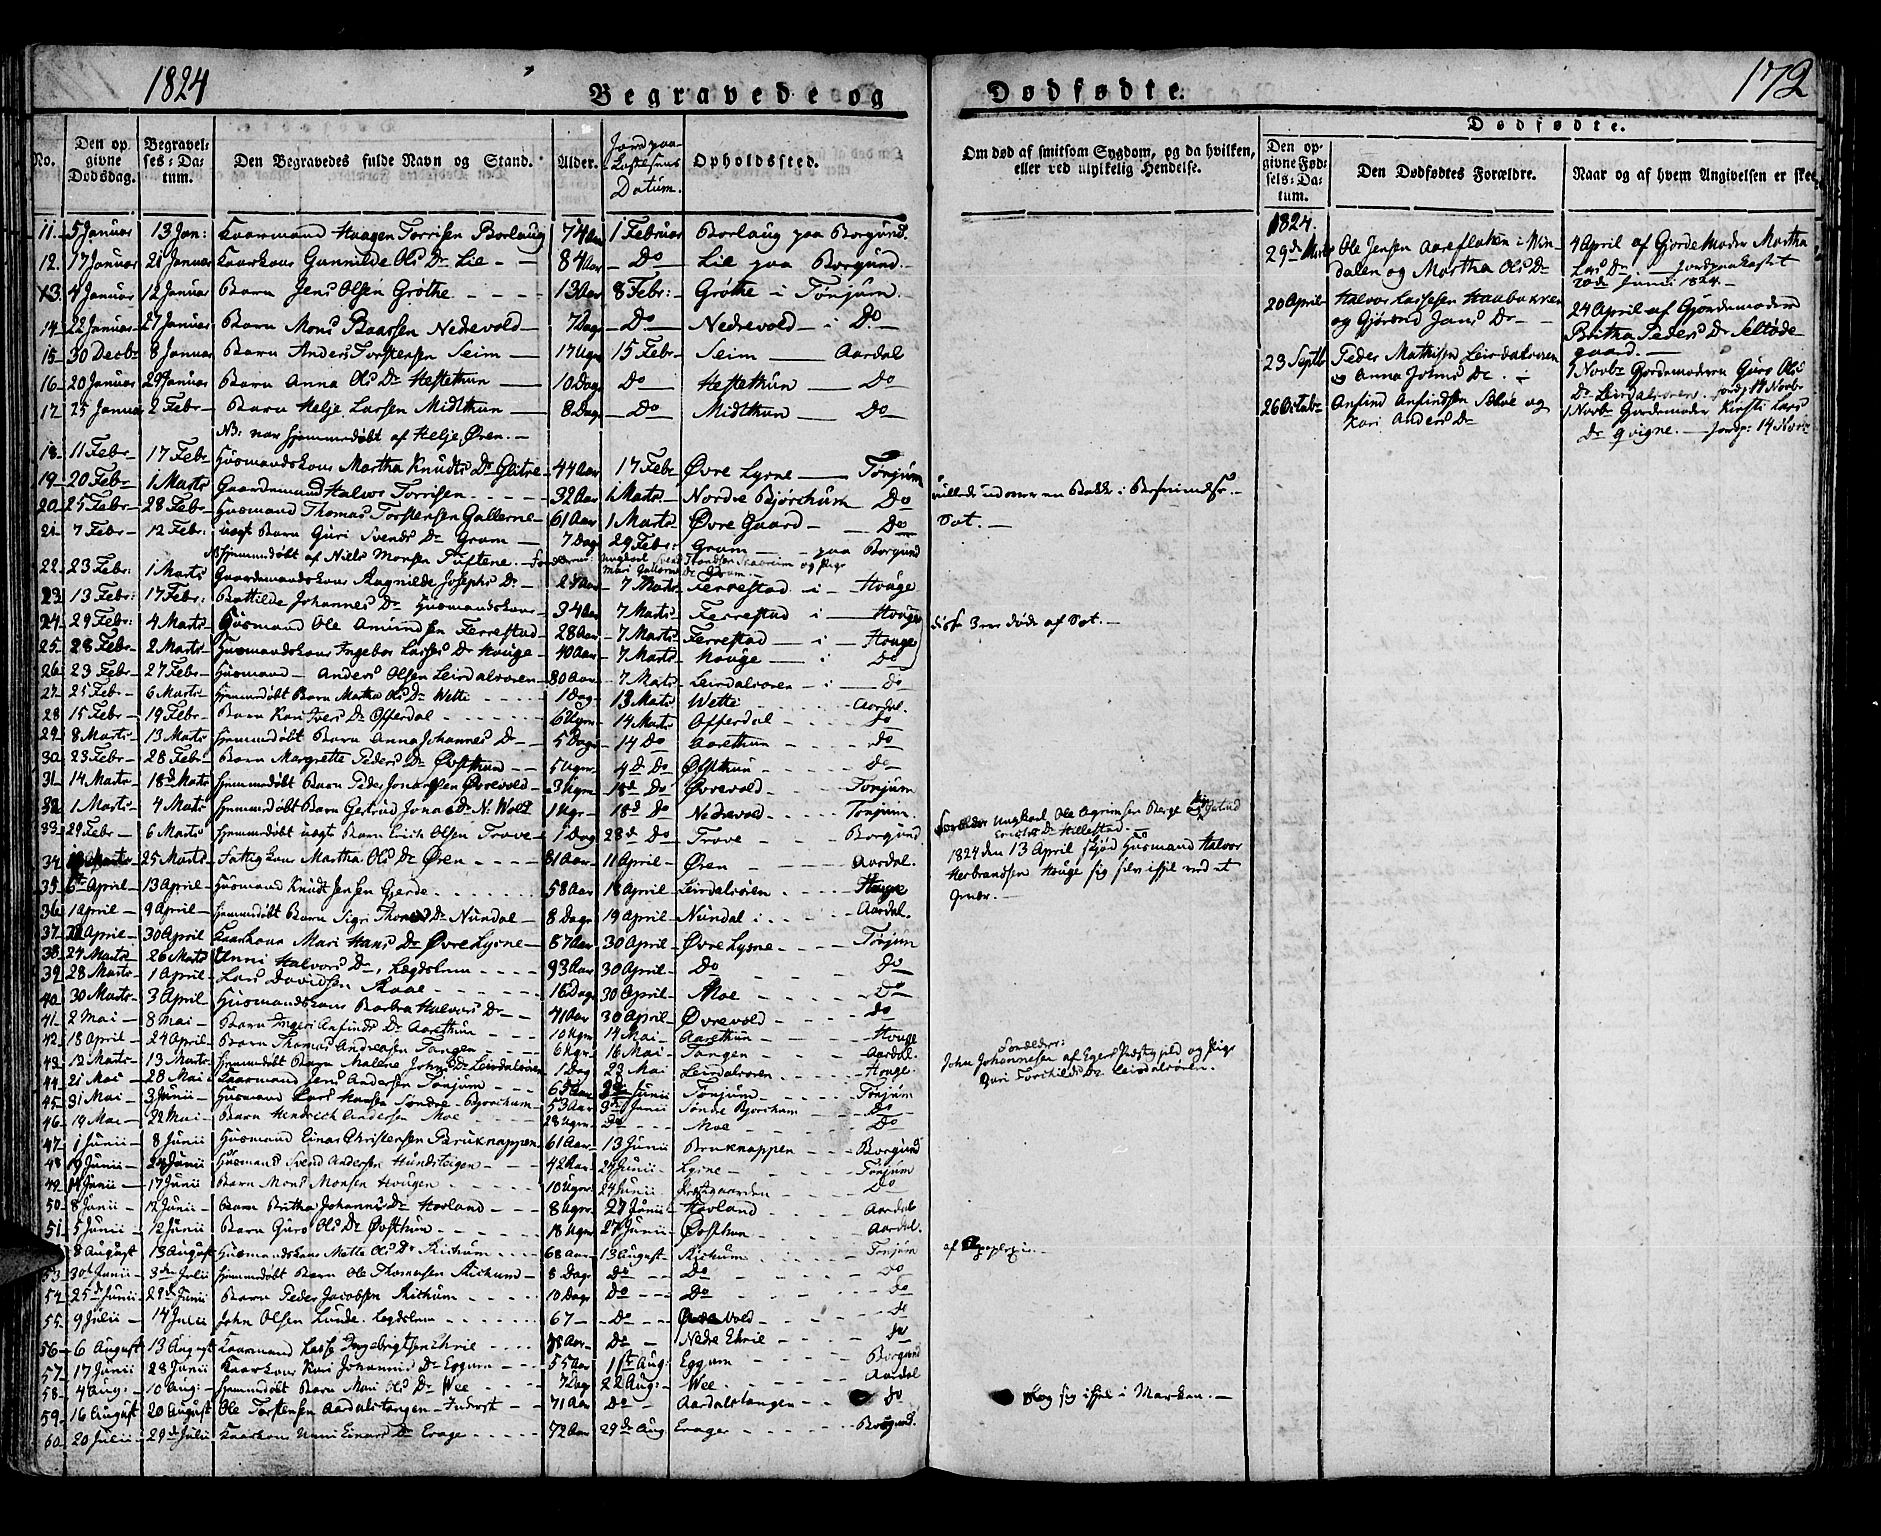 1824
Begravede og
Dødfødte.
172
No.
Den opgivne Dødsdag.
Begravelses-Datum.
Den Begravedes fulde Navn og Stand.
Alder.
Jordpaakastelsens Datum.
Opholdssted.
Om død af smitsom Sygdom, og da hvilken, eller ved ulykkelig Hendelse.
Dødfødte.
Den opgivne Fødsels-Datum.
Den Dødfødtes Forældre.
Naar og af hvem Angivelsen er skeet.
11. 5 Januar 13 Jan: Kaarmand Haagen Torrisen Borlaug 74 Aar 1 Februar Borlaug paa Borgund.
12. 17 Januar 21 Januar Kaarkone Gunnilde Ols Dr Lie 84 Aar Do Lie paa Borgund.
13. 4 Januar 12 Januar Barn Jens Olsen Grøthe 13 Aar 8 Febr: Grøthe i Tønjum.
14. 22 Januar 27 Januar Barn Mons Baarsen Nedrevold 7 Dage Do Nedrevold i Do
15. 30 Decbr 8 Januar Barn Anders Torstensen Seim 17 Uger 15 Febr Seim Aardal
16. 20 Januar 29 Januar Barn Anna Ols Dr Hestethun 10 Dage Do Hestethun Do
17. 25 Januar 2 Febr Barn Helje Larsen Midlthun 8 Dage Do Midlthun Do
NB: var hjemmedøbt af Helje Øren.
18. 11 Febr 17 Febr Huusmandskone Martha Knudts Dr Glitre 44 Aar 17 Febr Øvre Lysne Tønjum
19. 20 Febr 1 Marts Gaardemand Halvor Torrisen 32 Aar 1 Marts Nordre Bjørchum Do
20. 25 Febr 28 Febr Huusmand Thomas Torstensen Gallerne 61 Aar 1 Marts Øvre Gaard Do Sot.
21. 7 Febr 12 Febr: uægt Barn Guri Svends Dr Gram 7 Dage 29 Febr: Gram paa Borgund
NB Hjemmedøbt af Niels Monsen Tuftene.
22. 23 Febr: 1 Marts Gaardemandskone Ragnilde Josephs Dr 7 Marts Ferrestad i Houge
23. 13 Febr: 17 Febr: Bottilde Johannes Dr Huusmandskone 34 Aar 7 Marts Ferrestad i Houge
24. 29 Febr: 4 Marts Huusmand Ole Amundsen Ferrestad 28 Aar 7 Marts Ferrestad i Houge
disse 3 ere døde af Sot.
25. 28 Febr 2 Marts Huusmandskone Ingebor Lasses Dr Houge 40 Aar 7 Marts Houge i Do
26. 23 Febr 27 Febr Huusmand Anders Olsen Leirdalsøren 80 Aar 7 Marts Leirdalsøren i Do
27. 25 Febr 6 Marts Hjemmedøbt Barn Martha Ols Dr Wette 1 Dag 13 Marts Wette Aardal.
28. 15 Febr 19 Febr Barn Kari Ivers Dr Offerdal 6 Uger 14 Marts Offerdal Do
29. 8 Marts 13 Marts Hjemmedøbt Barn Anna Johannes Dr 5 Dage 14 Do Aarethun Do
30. 23 Febr 28 Febr Barn Margrette Peders Dr Øvsthun 5 Uger 4 d Do Øvsthun Do
31. 14 Marts 18 d Marts Hjemmedøbt Barn Peder Øvrevold 3 Uger 18 d Do Øvrevold Tønjum
32. 1 Marts 4 Marts Hjemmedøbt Barn Gertrud Jonas Dr N: Wold 1 Uger 18 d Do Nedrevold Tønjum.
33. 29 Febr 6 Marts Hjemmedøbt uægt Barn Erich Olsen Trove 1 Dag 28 d Do Trove Borgund
Forældre Ungkarl Ole Agrimsen Berge og Hillestad.
34. 25 Marts Fattigkone Martha Ols Dr Øren 81 Aar 11 April Øren Aardal.
35. 6te April 13 April Huusmand Knudt Jensen Gjerde 58 Aar 18 April Leirdalsøren Houge
1824 den 13 April skjød Huusmand Halvor Herbrandsen Houge sig selv ihjel med et Gevær.
36. 1 April 9 April Hjemmedøbt Barn Sigri Dr Nundal 8 Dage 19 April Nundal i Aardal.
37. April 30 April Kaarkone Mari Hans Dr Øvre Lysne 87 Aar 30 April Øvre Lysne Tønjum
38. 24 Marts 26 Marts Unni Halvors Dr, Lægdslem 93 Aar 30 April Do Do
39. 28 Marts 1 April Lars Davidsen 16 Dage 30 April Moe Do
40. 30 Marts 3 April Huusmandskone Barbra Halvors Dr 71 Aar 30 April Øvrevold Do
41. 2 Mai 8 Mai Barn Ingeri Anfinds Dr Aarethun 10 Uger 14 Mai Aarethun Houge
42. 18 April 24 April Barn Thomas Andreasen Tangen 6 Uger 16 Mai Tangen Aardal.
43. 12 Marts 13 Marts Hjemmedøbt Barn Malene Johns Dr Leirdalsøren 1 Dag 23 Mai Leirdalsøren Houge.
Forældre: John Johannesen af Egers Præstegjeld og Pige Torchilds Dr Leirdalsøren.
44. 21 Mai 28 Mai Kaarmand Jens Andersen Tønjum 65 Aar Junii Tønjum Tønjum
45. 31 Mai 3 Junii Huusmand Lars Hansen Søndre Bjørchum 53 Aar Junii Søndre Bjorchum Do
46. 19 Mai 22 Mai Barn Hendrich Andersen Moe 28 Uger Do Moe Do
47. 1 Junii 8 Junii Huusmand Einar Christensen Bruknappen 61 Aar 13 Junii Bruknappen Borgund
48. Junii Junii Huusmand Svend Andersen Hundsteigen 42 Aar 24 Junii Lysne Tønjum
49. 11 Junii 17 Junii Barn Mons Monsen Hougen 10 Uger 24 Junii Præstegaarden Do
50. 8 Junii 12 Junii Barn Britha Johannes Dr Hovland 8 Uger 27 Junii Hovland Aardal
51. 5 Junii 12 Junii Barn Guro Ols Dr Øvsthun 18 Uger 27 Junii Øvsthun Aardal.
8 August 13 August Huusmandskone Mette Ols Dr Richum 68 Aar 13 August Richum Tønjum
af Apoplexie.
53. 30 Junii 3 die Julii Hjemmedøbt Barn Ole Thomasen Richum 8 Dage Do Do Do
54. 25 Junii 29 Junii Barn Peder Jacobsen Richum 10 Dage Do Do Do
55. 9 Julii 14 Julii John Olsen Lunde Lægdslem 67 Do Øvrevold Do
56. 6 August 13 August Kaarmand Lasse Ingebrigtsen Ehrie Aar Do Nedre Ehrie Do
57. 17 Junii 28 Junii Kaarkone Kari Johannis Dr Eggum 55 Aar 1ste Aug: Eggum Borgund
58. 4 Aug: 10 Aug: Hjemmedøbt Barn Mari Ols Dr Wee 7 Dage 22 Aug: Wee Aardal
59. 16 August 20 August Ole Torstensen Aardalstangen Inderst 71 Aar Do Aardalstangen Do
slog sig ihjel i Marken.
60. 20 Julii 29 Julii Kaarkone Unni Einars Dr Erage 72 Aar 29 de Aug. Erager Borgund.
1824.
29de Marts Ole Jensen Aareflaten i Windalen og Martha Ols Dr
4 April af Gjordemoder Martha Lars Dr. Jordpaakastet Junii 1824.
20 April Halvor Lassesen Haabakken og Gjørond Jons Dr
24 April af Gjordemoderen Britha Peders Dr
23 Septbr Peder Mathisen Leirdalsøren og Anna Johns Dr.
7 Novbr Gjordemoderen Guro Ols Dr Leirdalsøren. Novbr
26 Octobr Anfind Anfindsen og Kari Anders Dr
1 Novbr Gjordemoder Kirsti Lars Dr Qvigne. Jordp: 14 Novbr